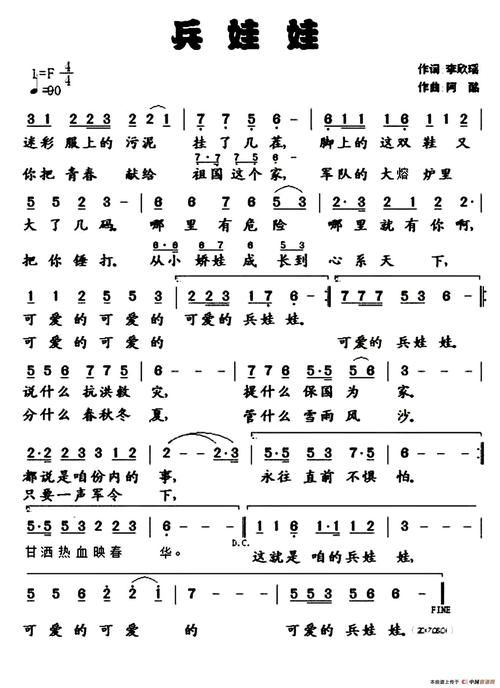 兵娃娃
1=F 4/4
♩=90
作词 李欣瑶
作曲 阿酩
31 223 221 | 7 7 5 6 - | 611 1112 | 3 - - - |
迷彩服上的污泥 挂了几茬, 脚上的这双鞋又
7·7 75 6 -
你把青春献给 祖国这个家, 军队的大熔炉里
5 5 2 3 - | 6 6 7 6 53 | 2·3 21 | 2 - - - |
大了几码。哪里有危险 哪里就有你啊,
6·6 6 7 53
把你锤打。从小娇娃成长到 心系天下,
1 1 2 5 5 3 | 223 1 7 6 - | 777 5 3 6 - |
可爱的可爱的 可爱的兵娃娃。
可爱的可爱的 可爱的兵娃娃。
556 775 | 6 - - - | 766 5·5 5 6 | 3 - - - |
说什么抗洪救灾, 提什么保国为家。
分什么春秋冬夏, 管什么雪雨风沙。
2·2 23 3 1 2 | 2 - - 2·3 | 5·5 5 3 7·5 | 6 - - - |
都说是咱份内的事, 永往直前不惧怕。
只要一声军令下,
5·5 5 3 2 2 3 | 6 - - - | 116 1·1 1 2 | 3 - - - |
D.C.
甘洒热血映春华。 这就是咱的兵娃娃,
5 5 6 2 21 | 7 - - - | 5·5 5 3 5 6 | 6 - - - |
FINE
可爱的可爱的 可爱的兵娃娃。
本曲谱上传于 中国曲谱网